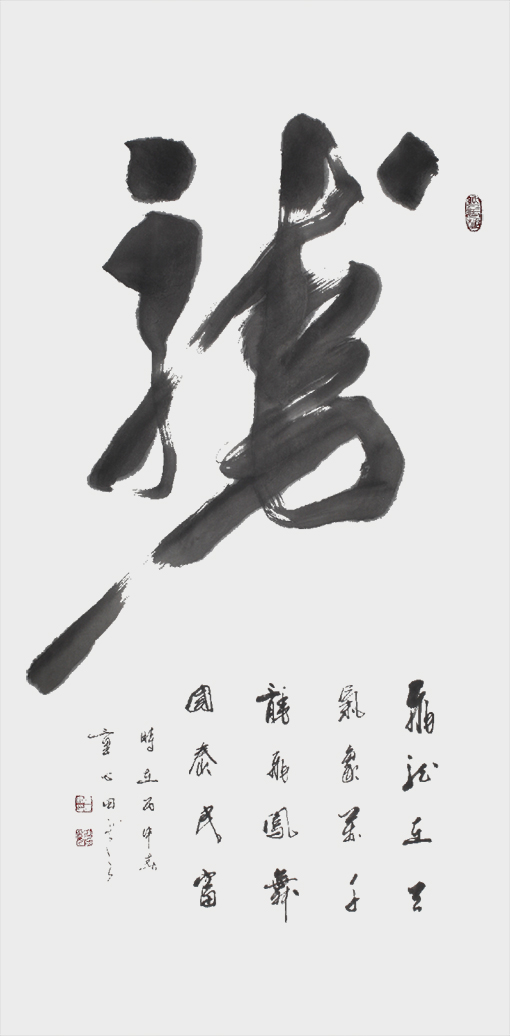 龍
飛龍在天
氣象萬千
龍飛鳳舞
國泰民富
時在丙申春
童心田